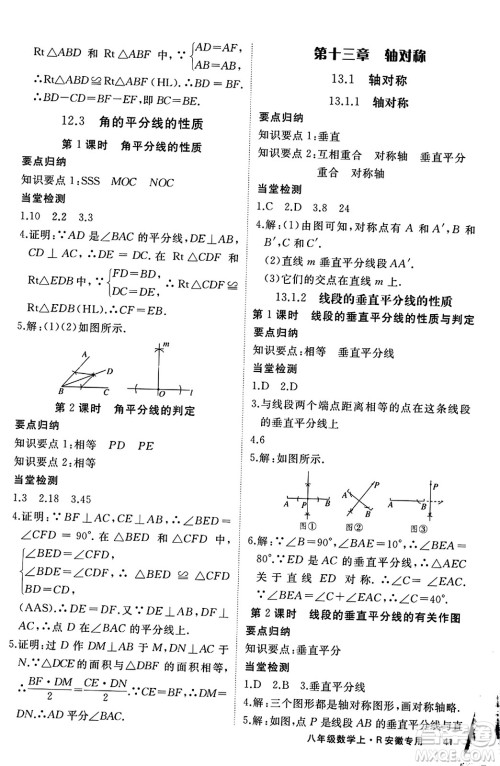 Rt△ABD 和 Rt△ABF 中,∵{AD=AF,
AB=AB,
∴Rt△ABD≌Rt△ABF(HL).∴BD=BF.
∴BD-CD=BF-EF,即 BC=BE.
12.3 角的平分线的性质
第 1 课时 角平分线的性质
要点归纳
知识要点 1:SSS MOC NOC
当堂检测
1.10 2.2 3.3
4.证明:∵AD 是∠BAC 的平分线,DE⊥AB,
∠C=90°,∴DC=DE. 在 Rt△DCF 和
Rt△EDB 中,∵{FD=BD,
DC=DE,
∴Rt△CDF≌
Rt△EDB(HL).∴CF=EB.
5.解:(1)(2)如图所示.
A
D
B
C
m
第 2 课时 角平分线的判定
要点归纳
知识要点 1:相等 PD PE
知识要点 2:相等
当堂检测
1.3 2.18 3.45
4.证明:∵BF⊥AC,CE⊥AB,∴∠BED=
∠CFD=90°.在△BDE 和△CDF 中,
{∠BED=∠CFD,
∠BDE=∠CDF,
BE=CF,
∴△BDE≌△CDF
(AAS).∴DE=DF.又∵DE⊥AB,DF⊥
AC,∴点 D 在∠BAC 的平分线上.
5.证明:过点 D 作 DM⊥AB 于 M,DN⊥AC
于 N.∵△DCE 的面积与△DBF 的面积相等,
∴BF·DM/2=CE·DN/2.∵CE=BF,∴DM=
DN.∴AD 平分∠BAC.
第十三章 轴对称
13.1 轴对称
13.1.1 轴对称
要点归纳
知识要点 1:垂直
知识要点 2:互相重合 对称轴 垂直平分
重合 对称轴 垂直平分线
当堂检测
1.C 2.D 3.8 24
4.解:(1)由图可知,对称点有 A 和 A′,B 和
B′,C 和 C′.
(2)直线 m 垂直平分线段 AA′.
(3)它们的交点在直线 m 上.
13.1.2 线段的垂直平分线的性质
第 1 课时 线段的垂直平分线的性质与判定
要点归纳
知识要点:相等 垂直平分线
当堂检测
1.D 2.D
3.与线段两个端点距离相等的点在这条线段
的垂直平分线上
4.6
5.解:如图所示.
A
B
P
A
B
P
A
B
P
图①
图②
图③
6.解:∵∠B=90°,∠BAE=10°,∴∠BEA=
80°.∵ED 是 AC 的垂直平分线,∴AE=EC.
∴△AEC 关于直线 ED 对称.∴∠C=
∠EAC.∵∠BEA=180°-∠AEC=∠C+
∠EAC,∴∠C=40°.
第 2 课时 线段的垂直平分线的有关作图
要点归纳
知识要点:垂直平分线
当堂检测
1.D 2.B 3.垂直平分线
4.解:三个图形都是轴对称图形,对称轴略.
5.解:如图,点 P 是线段 AB 的垂直平分线与直
八年级数学上·R 安徽专用
41